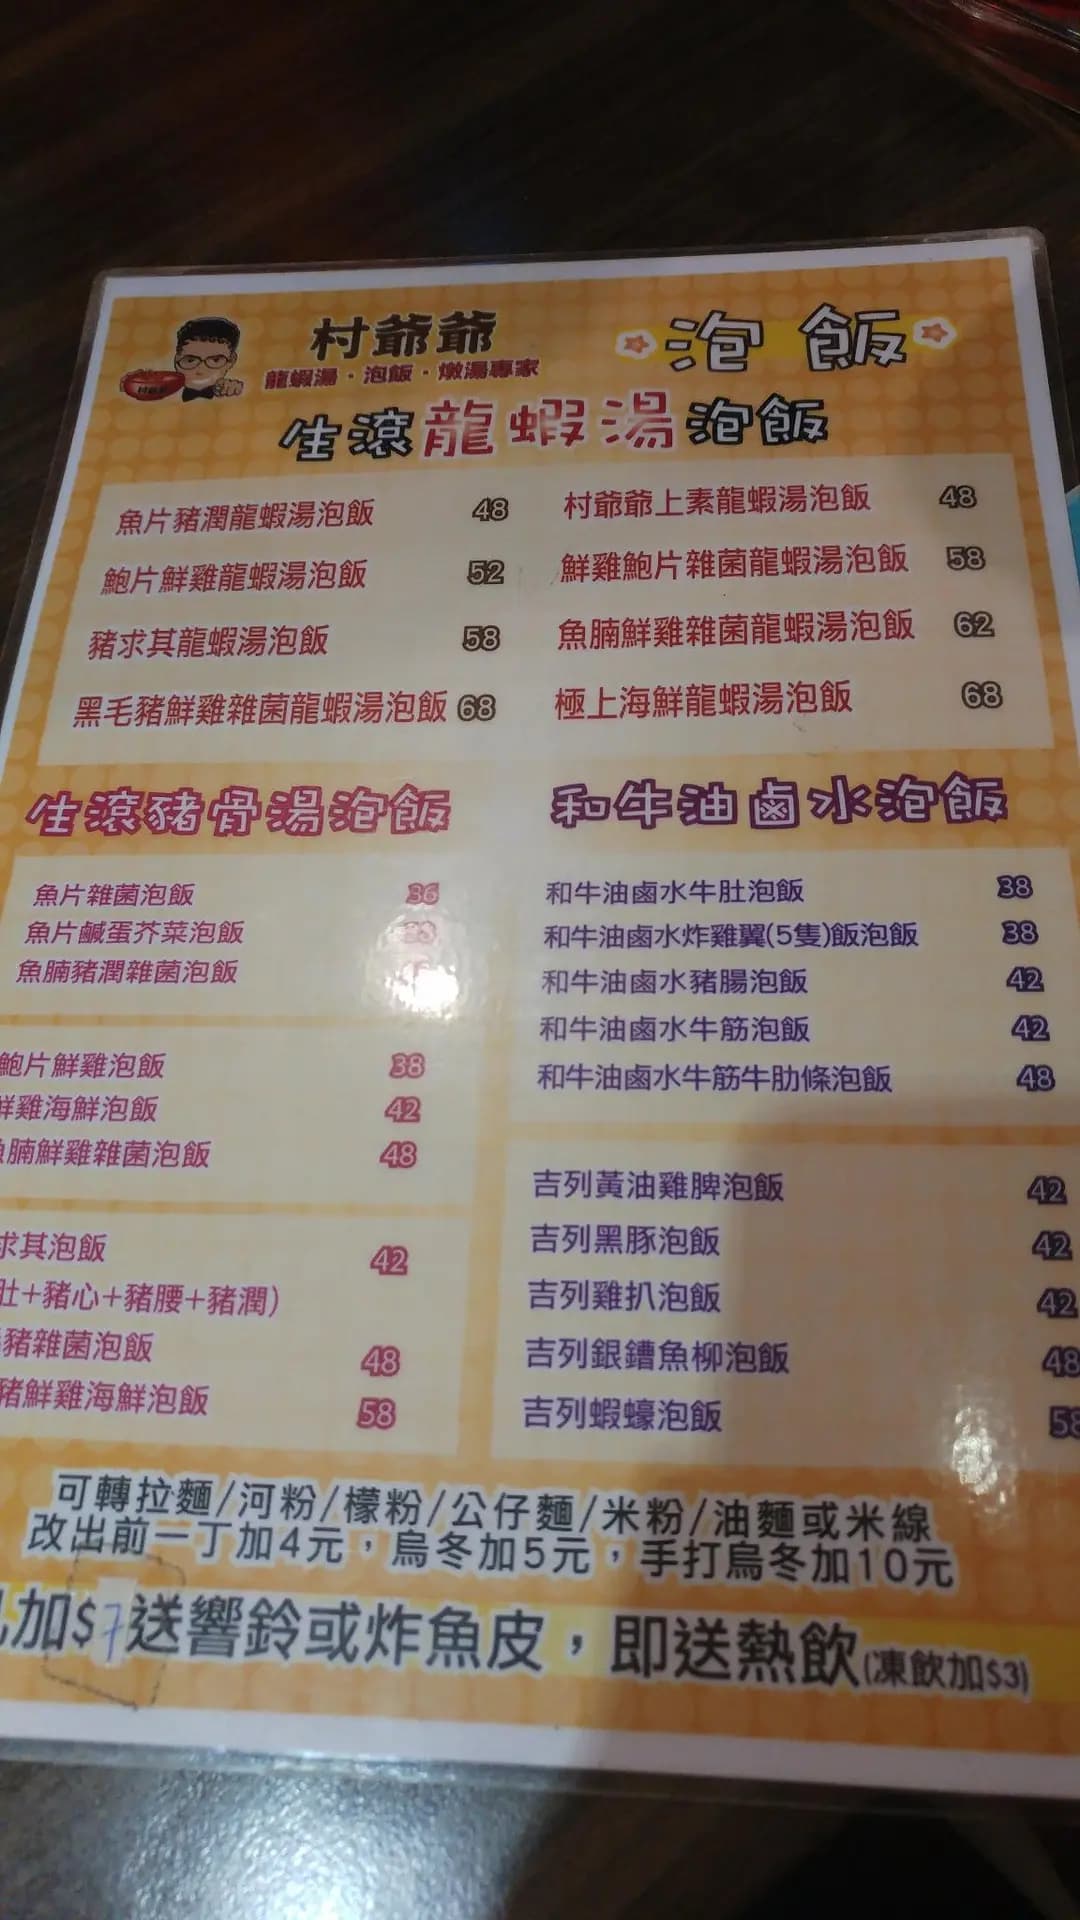 村爺爺
龍蝦湯・泡飯・燉湯專家
泡飯
生滾龍蝦湯泡飯
魚片豬潤龍蝦湯泡飯 48
鮑片鮮雞龍蝦湯泡飯 52
豬求其龍蝦湯泡飯 58
黑毛豬鮮雞雜菌龍蝦湯泡飯 68
村爺爺上素龍蝦湯泡飯 48
鮮雞鮑片雜菌龍蝦湯泡飯 58
魚腩鮮雞雜菌龍蝦湯泡飯 62
極上海鮮龍蝦湯泡飯 68
生滾豬骨湯泡飯
魚片雜菌泡飯 36
魚片鹹蛋芥菜泡飯
魚腩豬潤雜菌泡飯
鮑片鮮雞泡飯 38
鮮雞海鮮泡飯 42
腩鮮雞雜菌泡飯 48
求其泡飯 42
肚+豬心+豬腰+豬潤)
豬雜菌泡飯 48
豬鮮雞海鮮泡飯 58
和牛油鹵水泡飯
和牛油鹵水牛肚泡飯 38
和牛油鹵水炸雞翼(5隻)飯泡飯 38
和牛油鹵水豬腸泡飯 42
和牛油鹵水牛筋泡飯 42
和牛油鹵水牛筋牛肋條泡飯 48
吉列黃油雞脾泡飯 42
吉列黑豚泡飯 42
吉列雞扒泡飯 42
吉列銀鱈魚柳泡飯 48
吉列蝦蠔泡飯 58
可轉拉麵/河粉/檬粉/公仔麵/米粉/油麵或米線
改出前一丁加4元，烏冬加5元，手打烏冬加10元
加$7送響鈴或炸魚皮，即送熱飲(凍飲加$3)